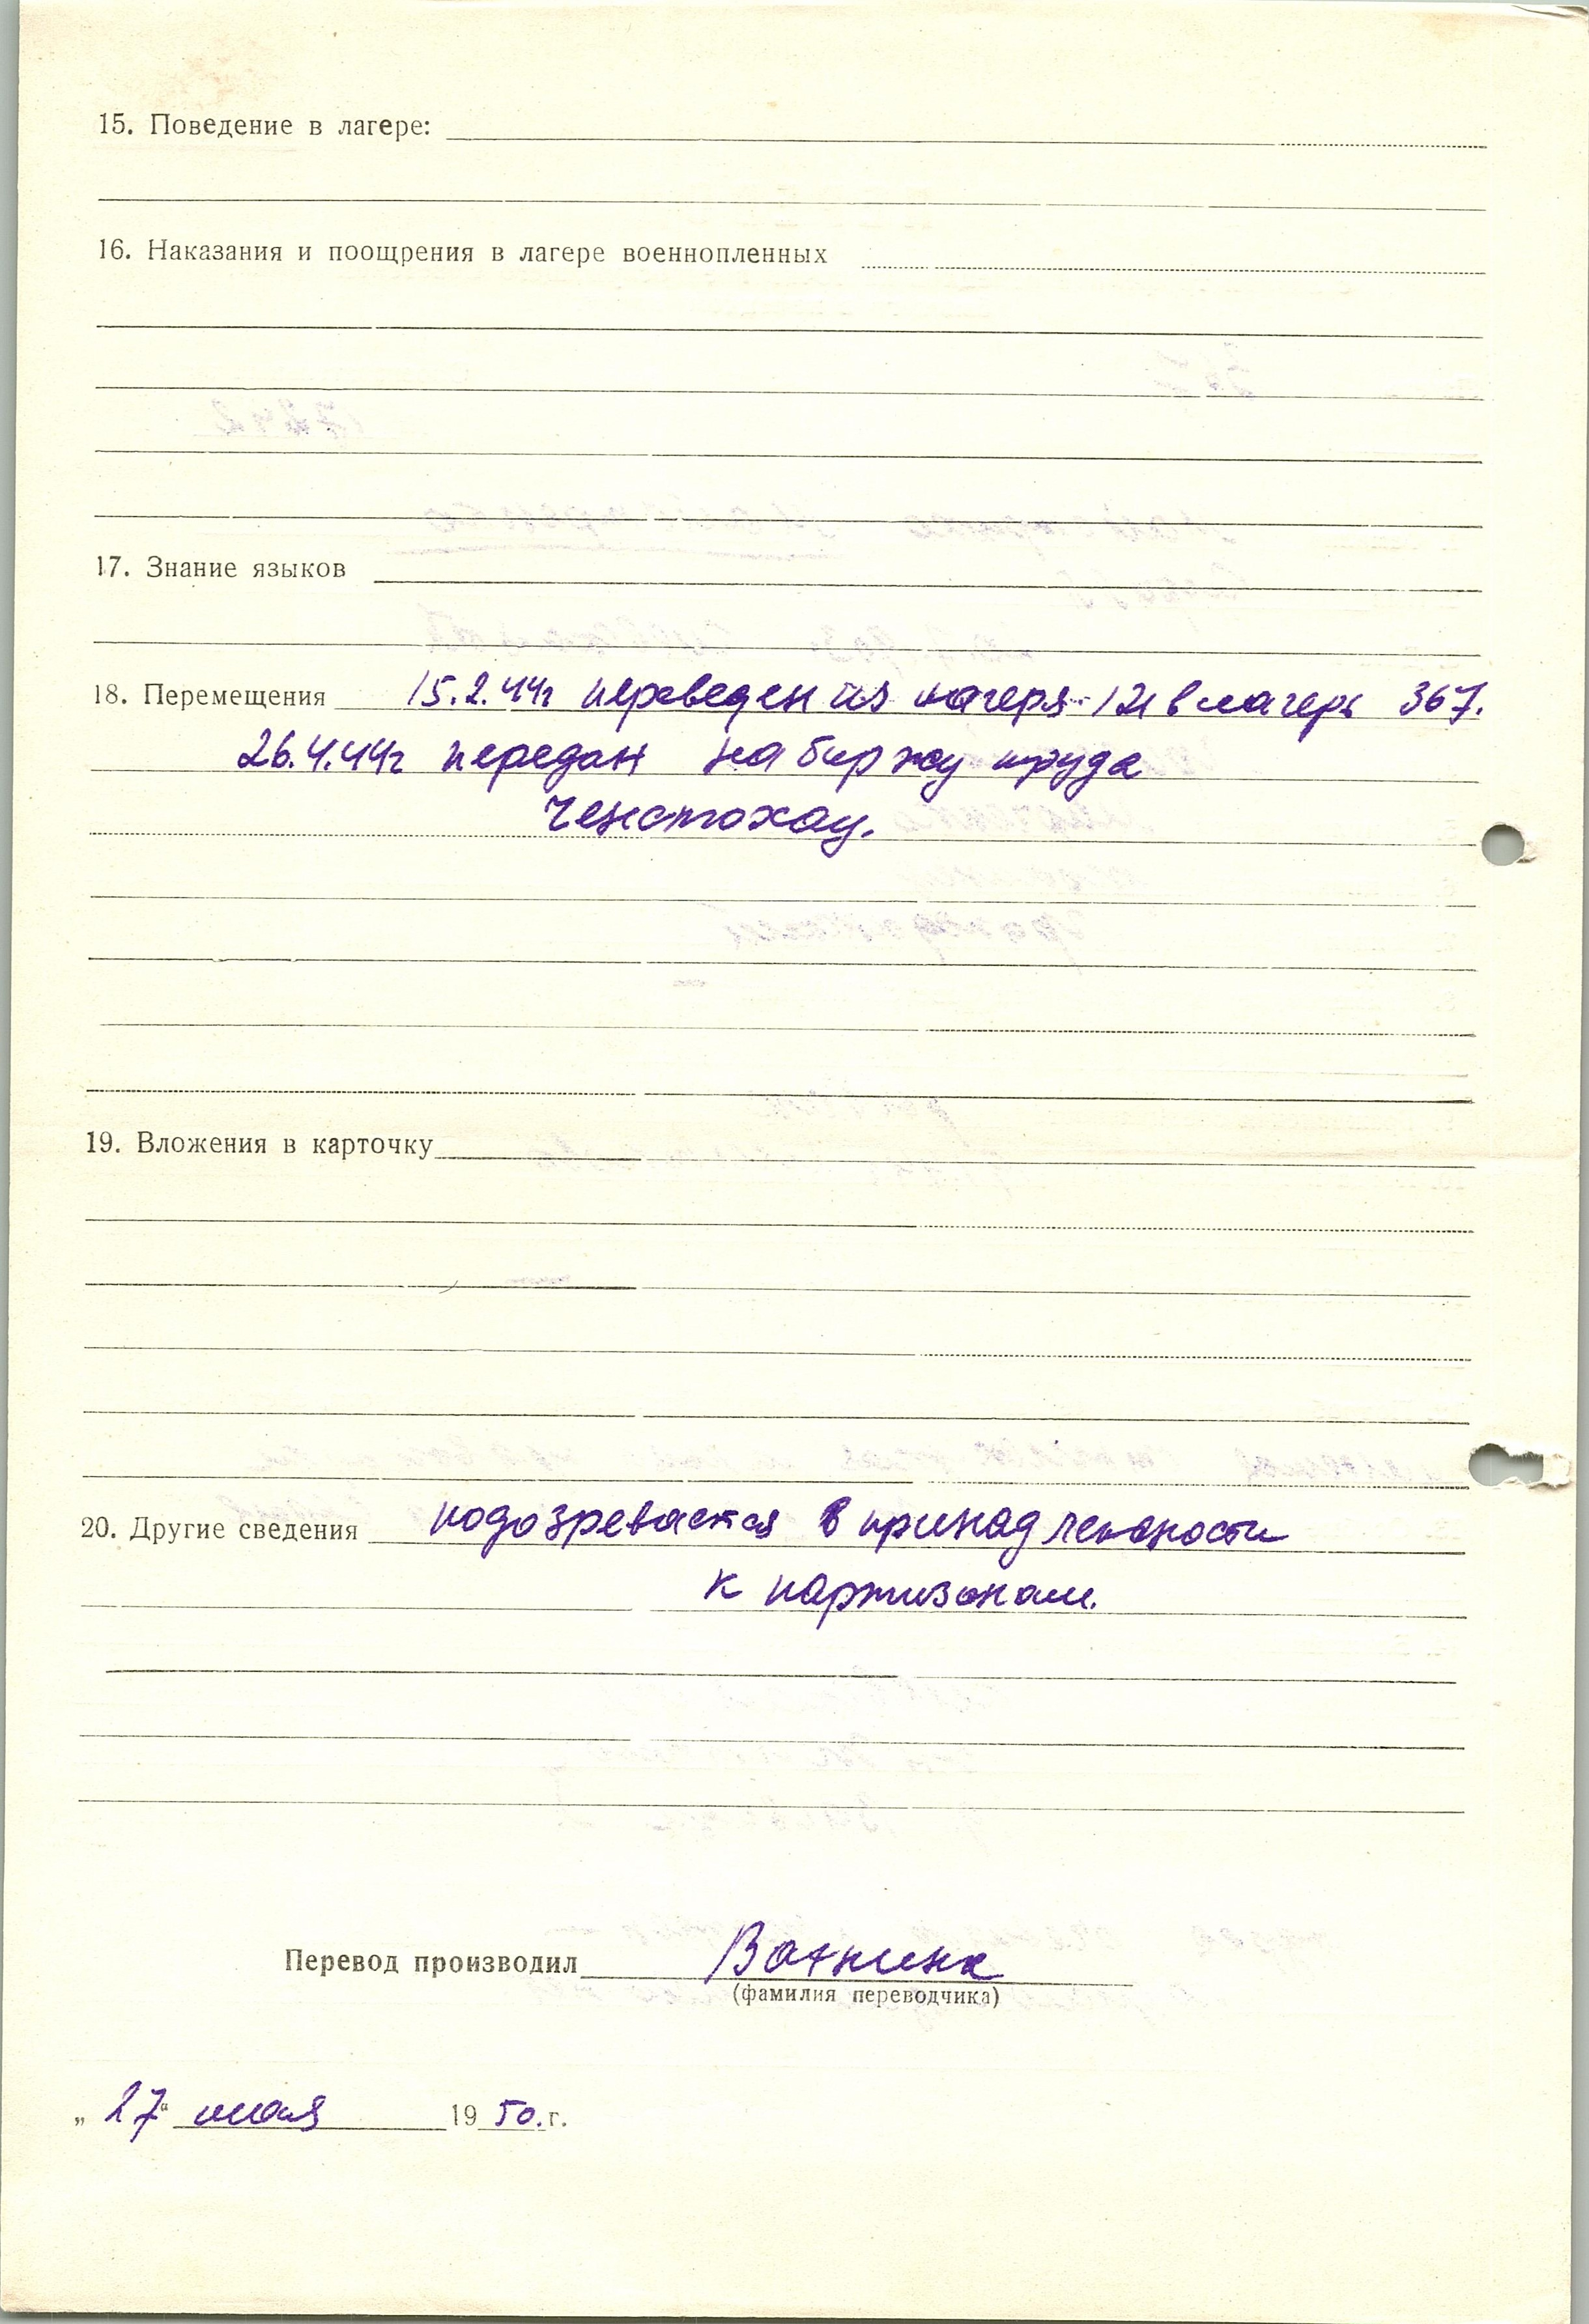 15. Поведение в лагере:
16. Наказания и поощрения в лагере военнопленных
17. Знание языков
18. Перемещения 15.2.44г переведен из лагеря 121 в лагерь 367.
26.4.44г передан на биржу труда
Ченстохау.
19. Вложения в карточку
20. Другие сведения подозревается в принадлежности
к партизанам.
Перевод производил
(фамилия переводчика)
„ 27 “ мая 19 50. г.